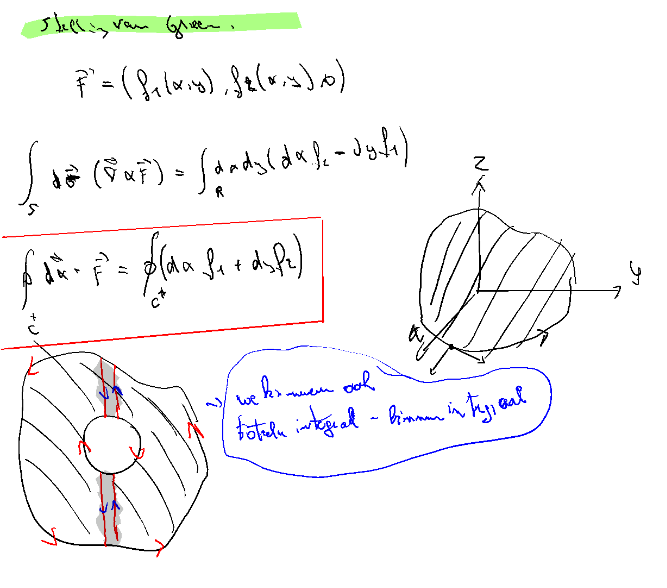 Stelling van Green.
F⃗ = (f₁(x,y), f₂(x,y), 0)
∫_S dσ⃗ (∇⃗ x F⃗) = ∫_R dx dy (∂x f₂ - ∂y f₁)
∮_C⁺ dx⃗ · F⃗ = ∮_C⁺ (dx f₁ + dy f₂)
z
y
x
→ we kunnen ook
totale integraal - binnen integraal